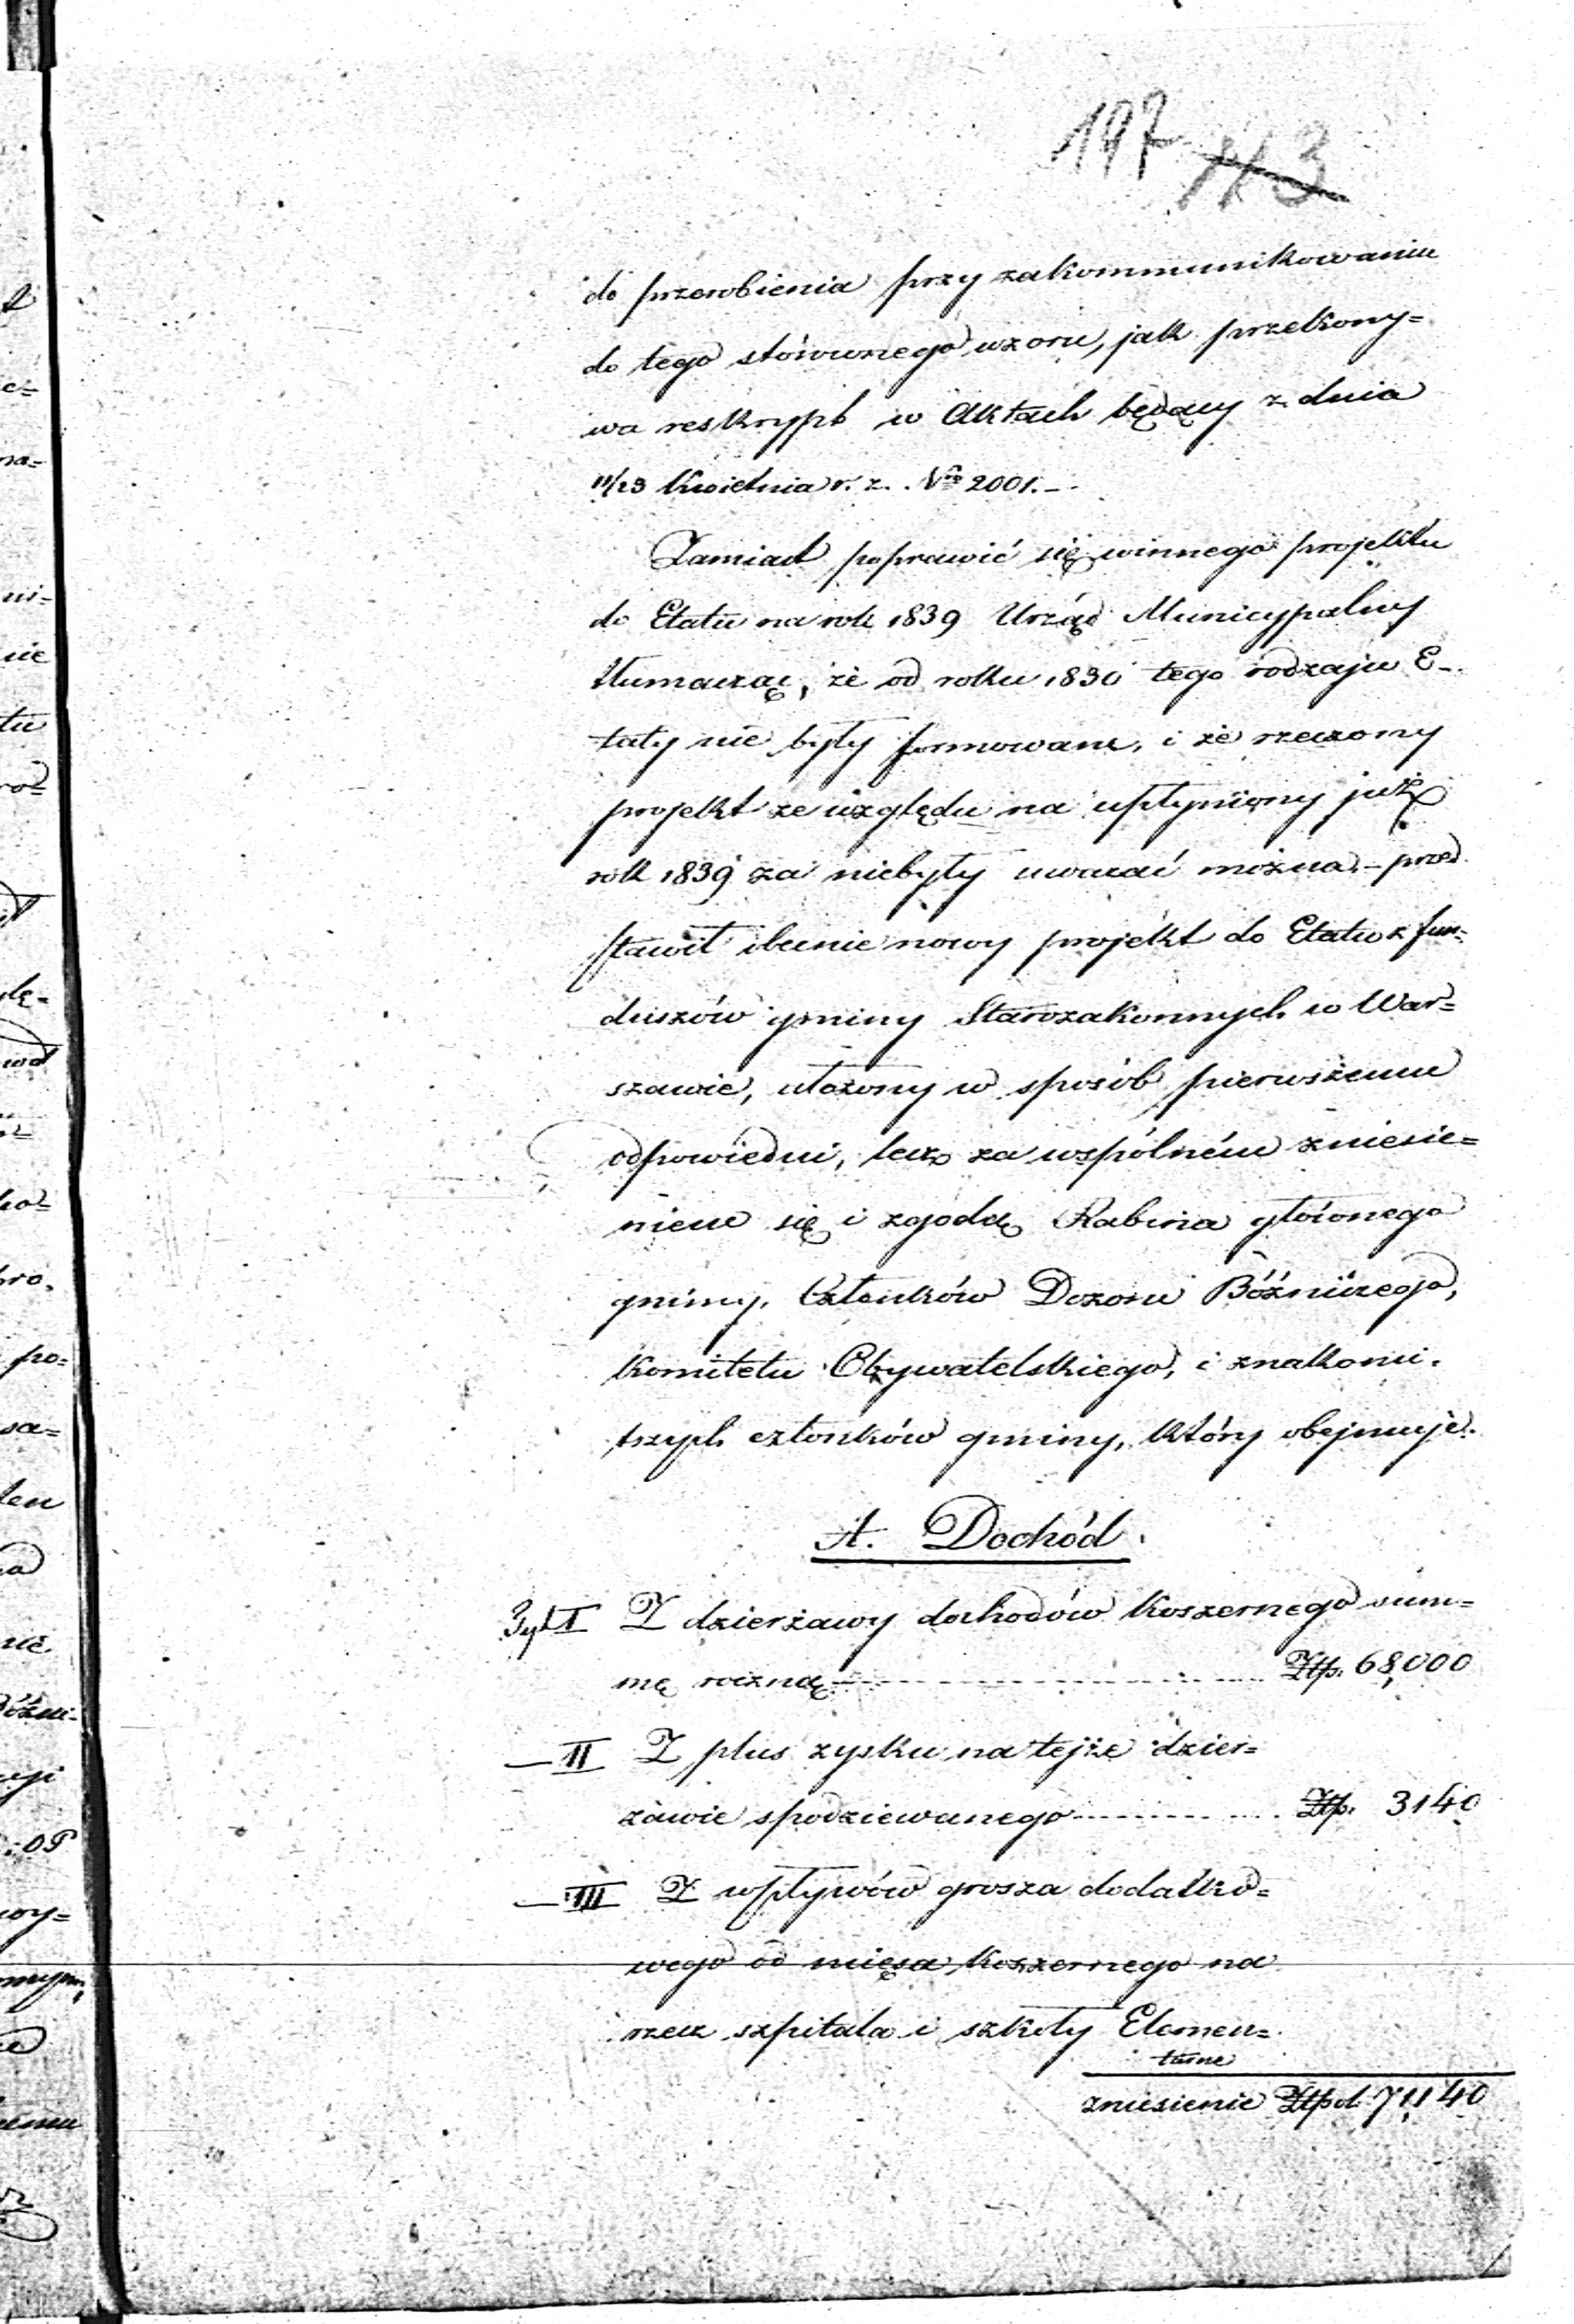 197 113
do przerobienia przy zakommunikowaniu
do tego stósownego wzoru, jak przekony=
wa reskrypt w Aktach będący z dnia
11/23 Kwietnia r. z. Nro 2001.-
Zamiast poprawić się winnego projektu
do Etatu na rok 1839 Urząd Municypalny
tłumacząc, że od roku 1830 tego rodzaju E-
taty nie były formowane, i że rzeczony
projekt ze względu na upłyniony już
rok 1839 za niebyły uważać można,- przed
stawił obecnie nowy projekt do Etatu z fun=
duszów gminy Starozakonnych w War=
szawie, ułożony w sposób pierwszemu
odpowiedni, lecz za wspólném zniesie=
niem się i zgodą Rabina głównego
gminy, Członków Dozoru Bóźniczego,
Komitetu Obywatelskiego, i znakomi.
tszych członków gminy, który obejmuje.
A. Dochód.
Tyt I Z dzierżawy dochodów Koszernego sum=
mę roczną Złp. 68,000
— II Z plus zysku na tejże dzier=
żawie spodziewanego Złp. 3140
— III Z wpływów grosza dodatko=
wego od mięsa koszernego na
rzecz szpitala i szkoły Elemen=
tarne
zniesienie Złpol. 71140